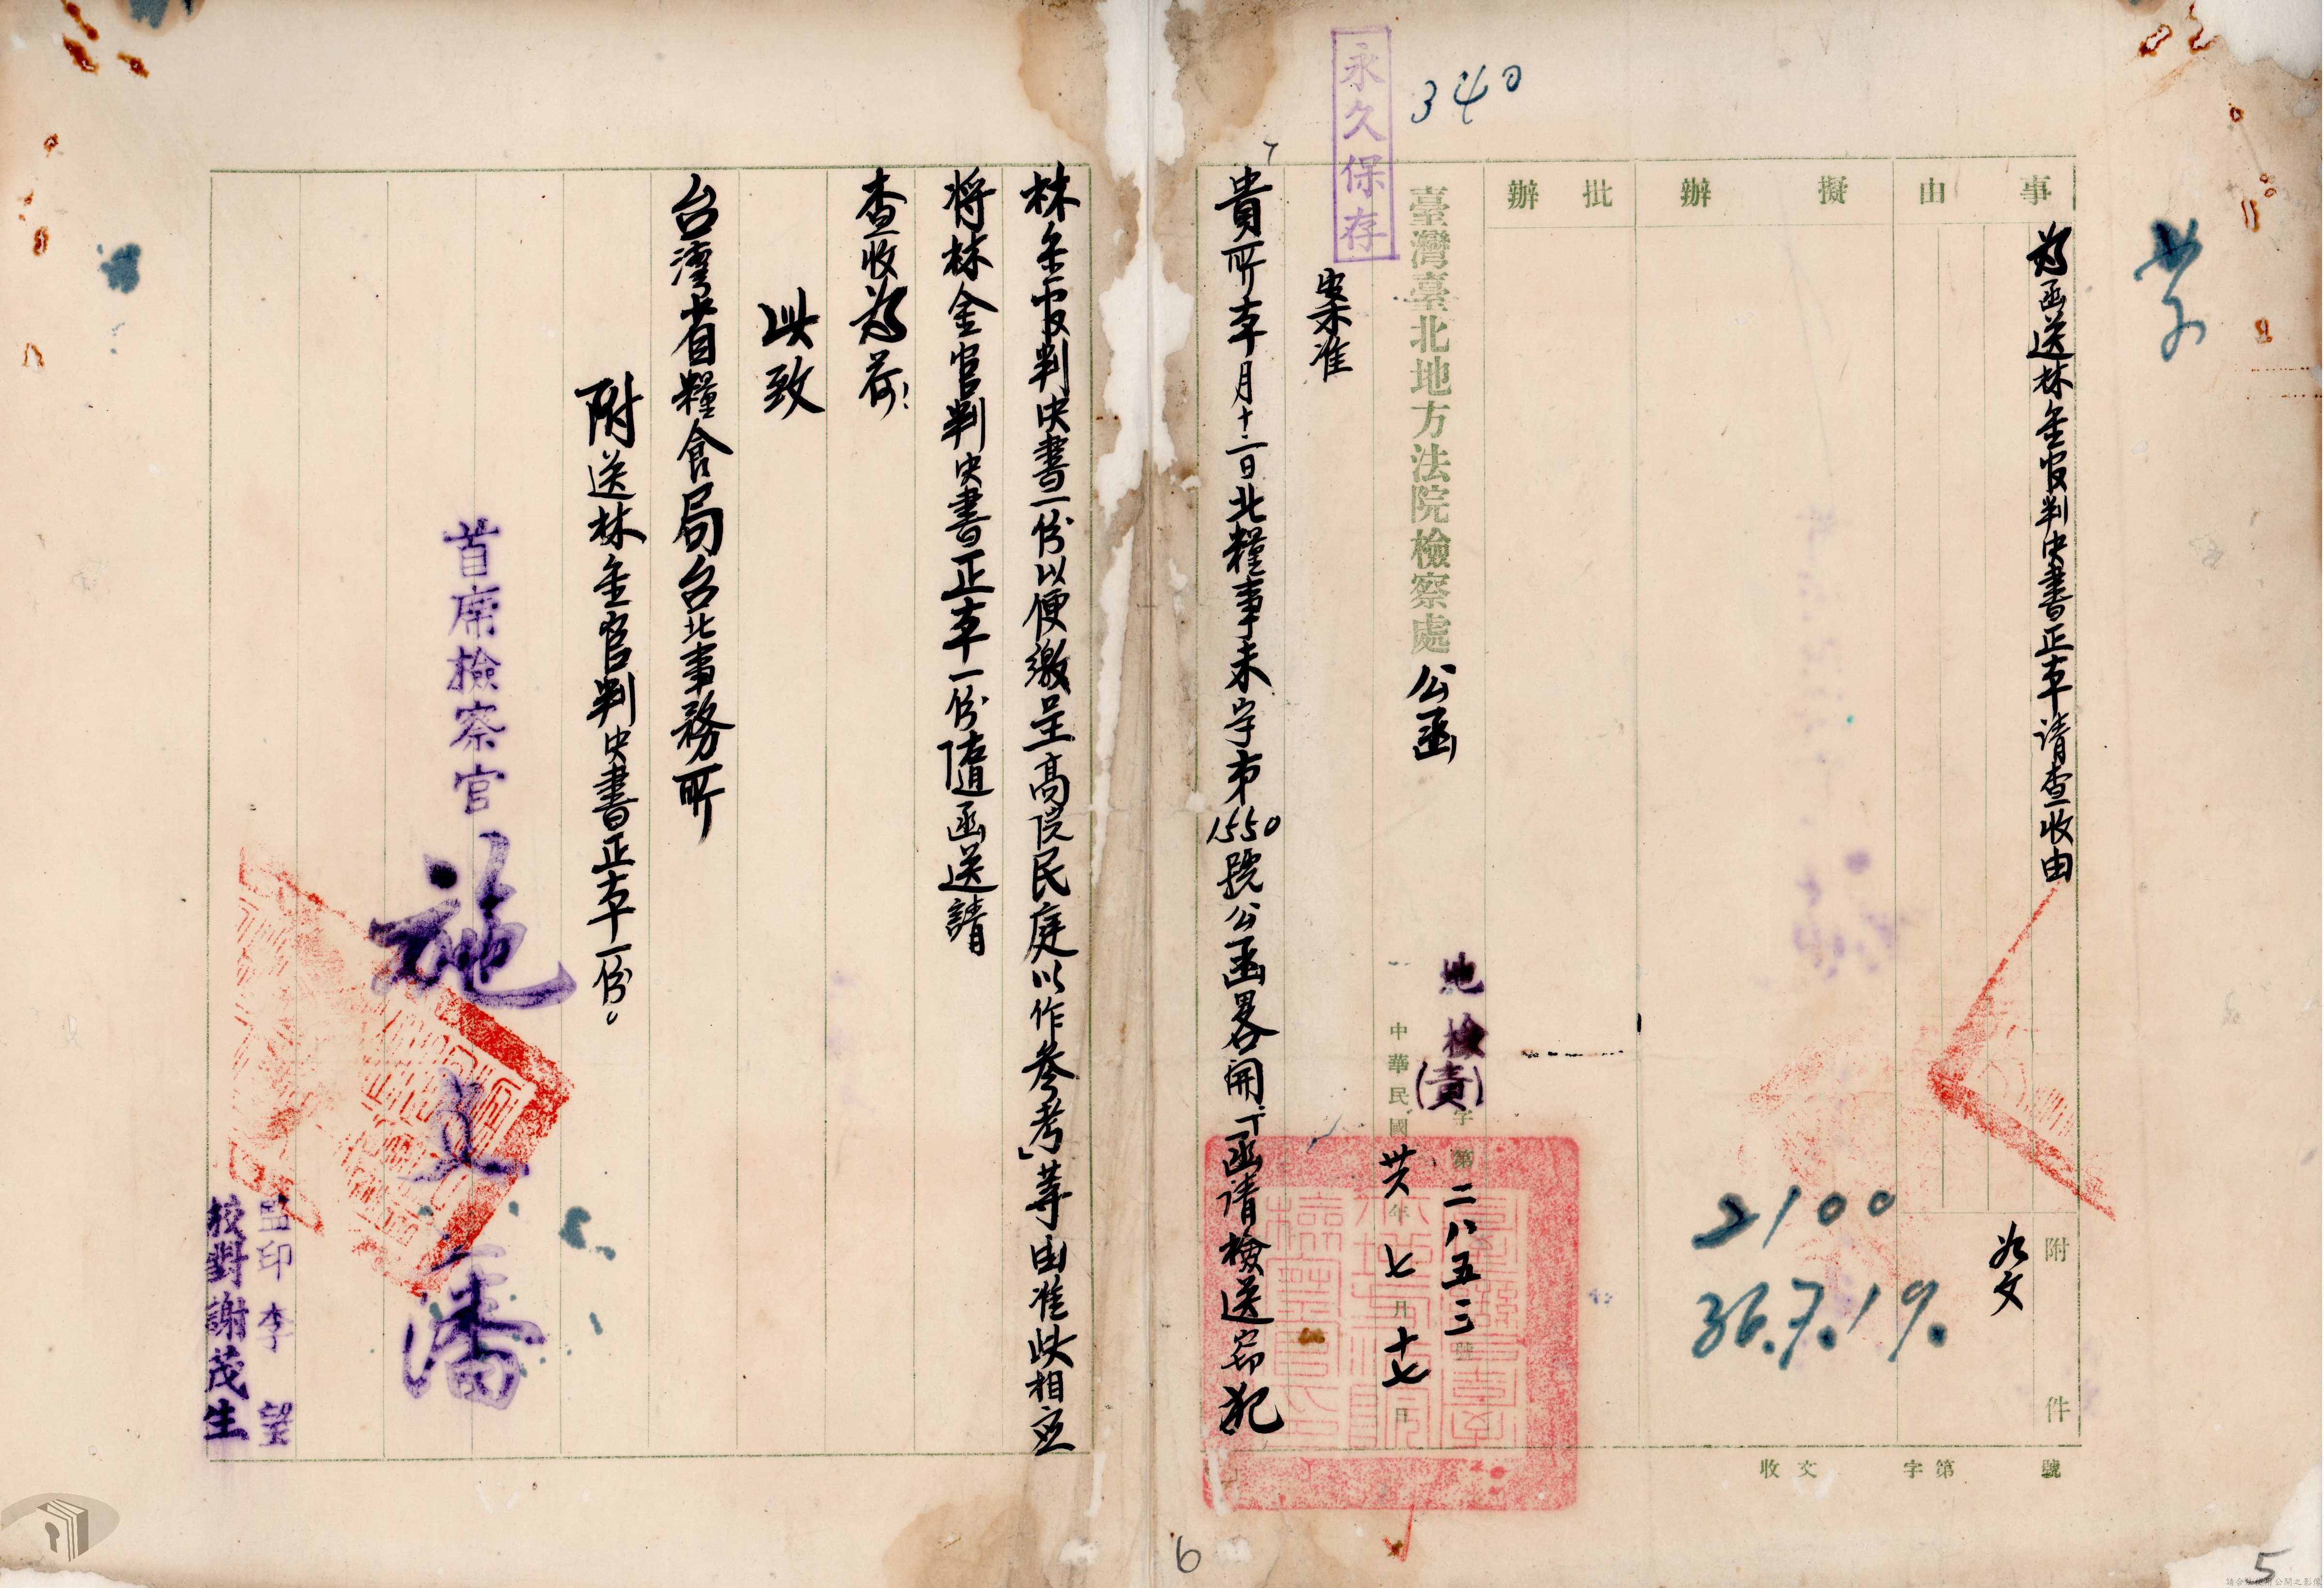 340
永久保存
事由
為函送林金官判決書正本請查收由
附件
如文
擬辦
批辦
2100
36.7.19.
收文 字第 號
臺灣臺北地方法院檢察處公函
地檢(責)字第二八五三號
中華民國卅六年七月十七日
案准
貴所本年月十二日北糧事未字第1550號公函畧開「函請檢送窃犯
林金官判決書一份以便繳呈高院民庭以作參考」等由准此相應
將林金官判決書正本一份隨函送請
查收為荷!
此致
台灣省糧食局台北事務所
附送林金官判決書正本一份。
首席檢察官
監印 李望
校對 謝茂生
6
5